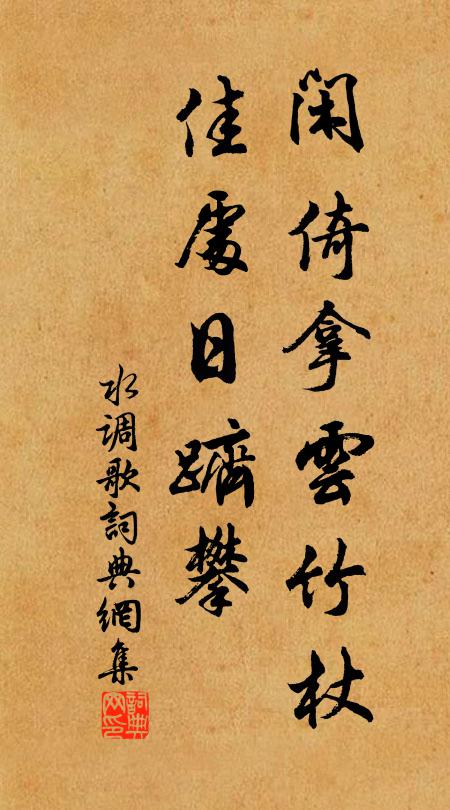 闲倚拿雲竹杖
佳處日躋攀
水调歌詞典網集
詞典网印